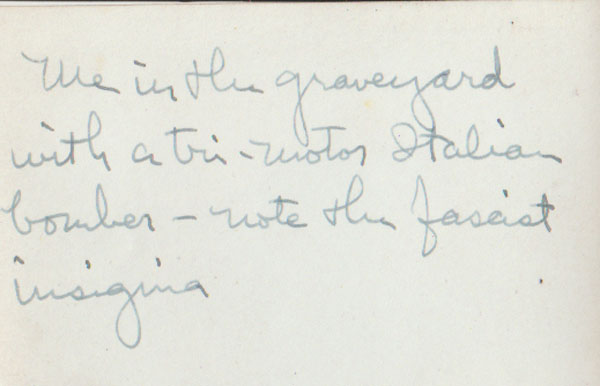 Me in the graveyard
with a tri-motor Italian
bomber - note the fascist
insigina